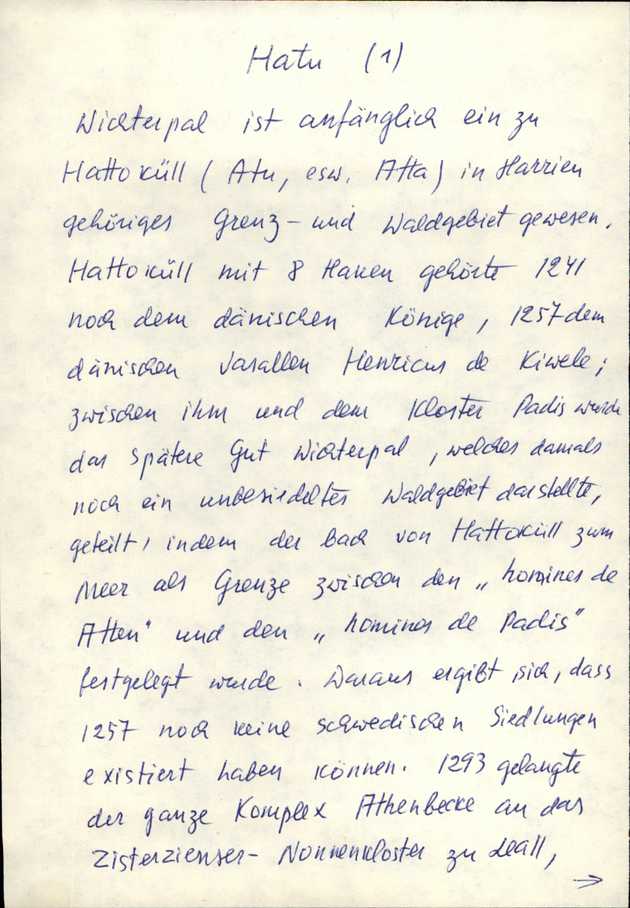 Hatu (1)
Wichterpal ist anfänglich ein zu
Hattoküll (Atu, esw. Atta) in Harrien
gehöriges Grenz- und Waldgebiet gewesen.
Hattoküll mit 8 Haken gehörte 1241
noch dem dänischen Könige, 1257 dem
dänischen Vasallen Henricus de Kiwele;
zwischen ihm und dem Kloster Padis wurde
das spätere Gut Wichterpal, welches damals
noch ein unbesiedeltes Waldgebiet darstellte,
geteilt, indem der Bach von Hattoküll zum
Meer als Grenze zwischen den „homines de
Atten" und den „homines de Padis"
festgelegt wurde. Daraus ergibt sich, dass
1257 noch keine schwedischen Siedlungen
existiert haben können. 1293 gelangte
der ganze Komplex Athenbecke an das
Zisterzienser- Nonnenkloster zu Leall,
→